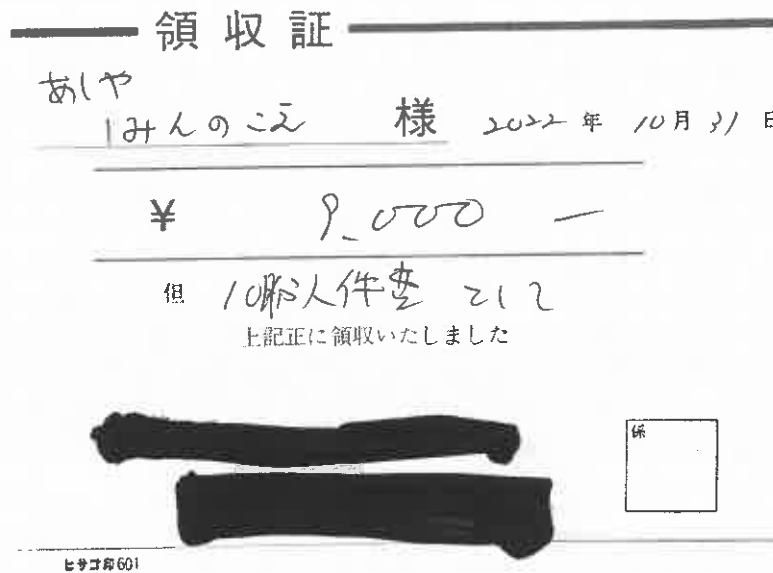 領収証
あしや
みんのこえ 様 2022年 10月31日
¥ 9,000 ー
但 10月分人件費 として
上記正に領収いたしました
係
ヒサゴ印601